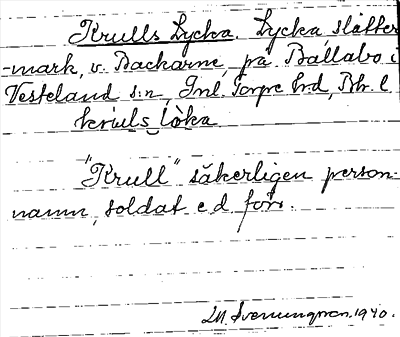 Krulls Lycka. Lycka, slåtter
-mark, v. Backarne, på Ballabo i
Vesteland s:n, Inl. Torpe hrd, Bhr. l.
kruls lòka
"Krull" säkerligen person-
namn, soldat e d förr.
LM. Svenungson. 1940.